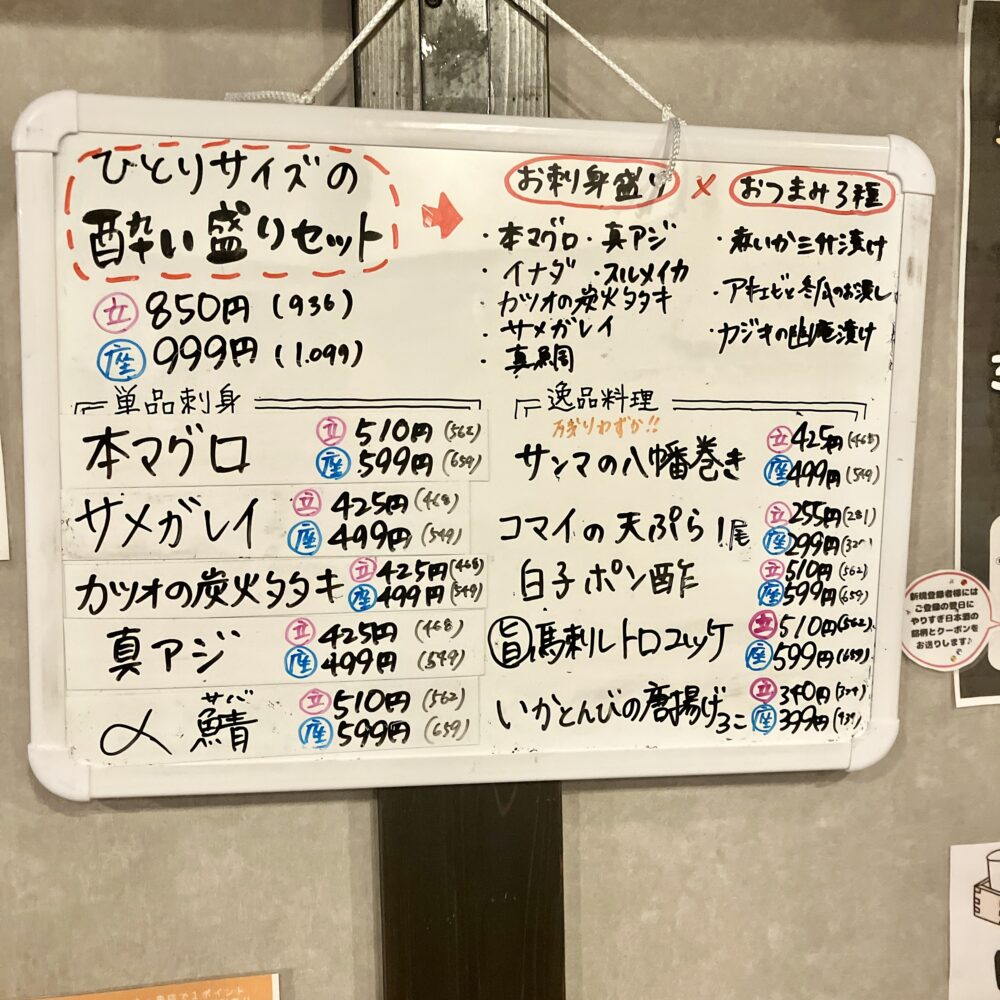 ひとりサイズの
酔い盛りセット
立 850円 (936)
座 999円 (1.099)
お刺身盛り × おつまみ3種
・本マグロ ・真アジ
・イナダ ・スルメイカ
・カツオの炭火タタキ
・サメガレイ
・真鯛
・煮いか三升漬け
・アキエビと冬瓜のお浸し
・カジキの幽庵漬け
単品刺身
本マグロ 立 510円 (562)
座 599円 (659)
サメガレイ 立 425円 (468)
座 499円 (549)
カツオの炭火タタキ 立 425円 (468)
座 499円 (549)
真アジ 立 425円 (468)
座 499円 (549)
〆鯖 サバ 立 510円 (562)
座 599円 (659)
逸品料理
残りわずか!!
サンマの八幡巻き 立 425円 (468)
座 499円 (549)
コマイの天ぷら 1尾 立 255円 (281)
座 299円
白子ポン酢 立 510円 (562)
座 599円 (659)
旨 馬刺しトロユッケ 立 510円 (562)
座 599円 (659)
いかとんびの唐揚げ 3コ 立 340円
座 399円
新規登録者様には
ご登録の翌日に
やりすぎ日本酒の
銘柄とクーポンを
お送りします♪